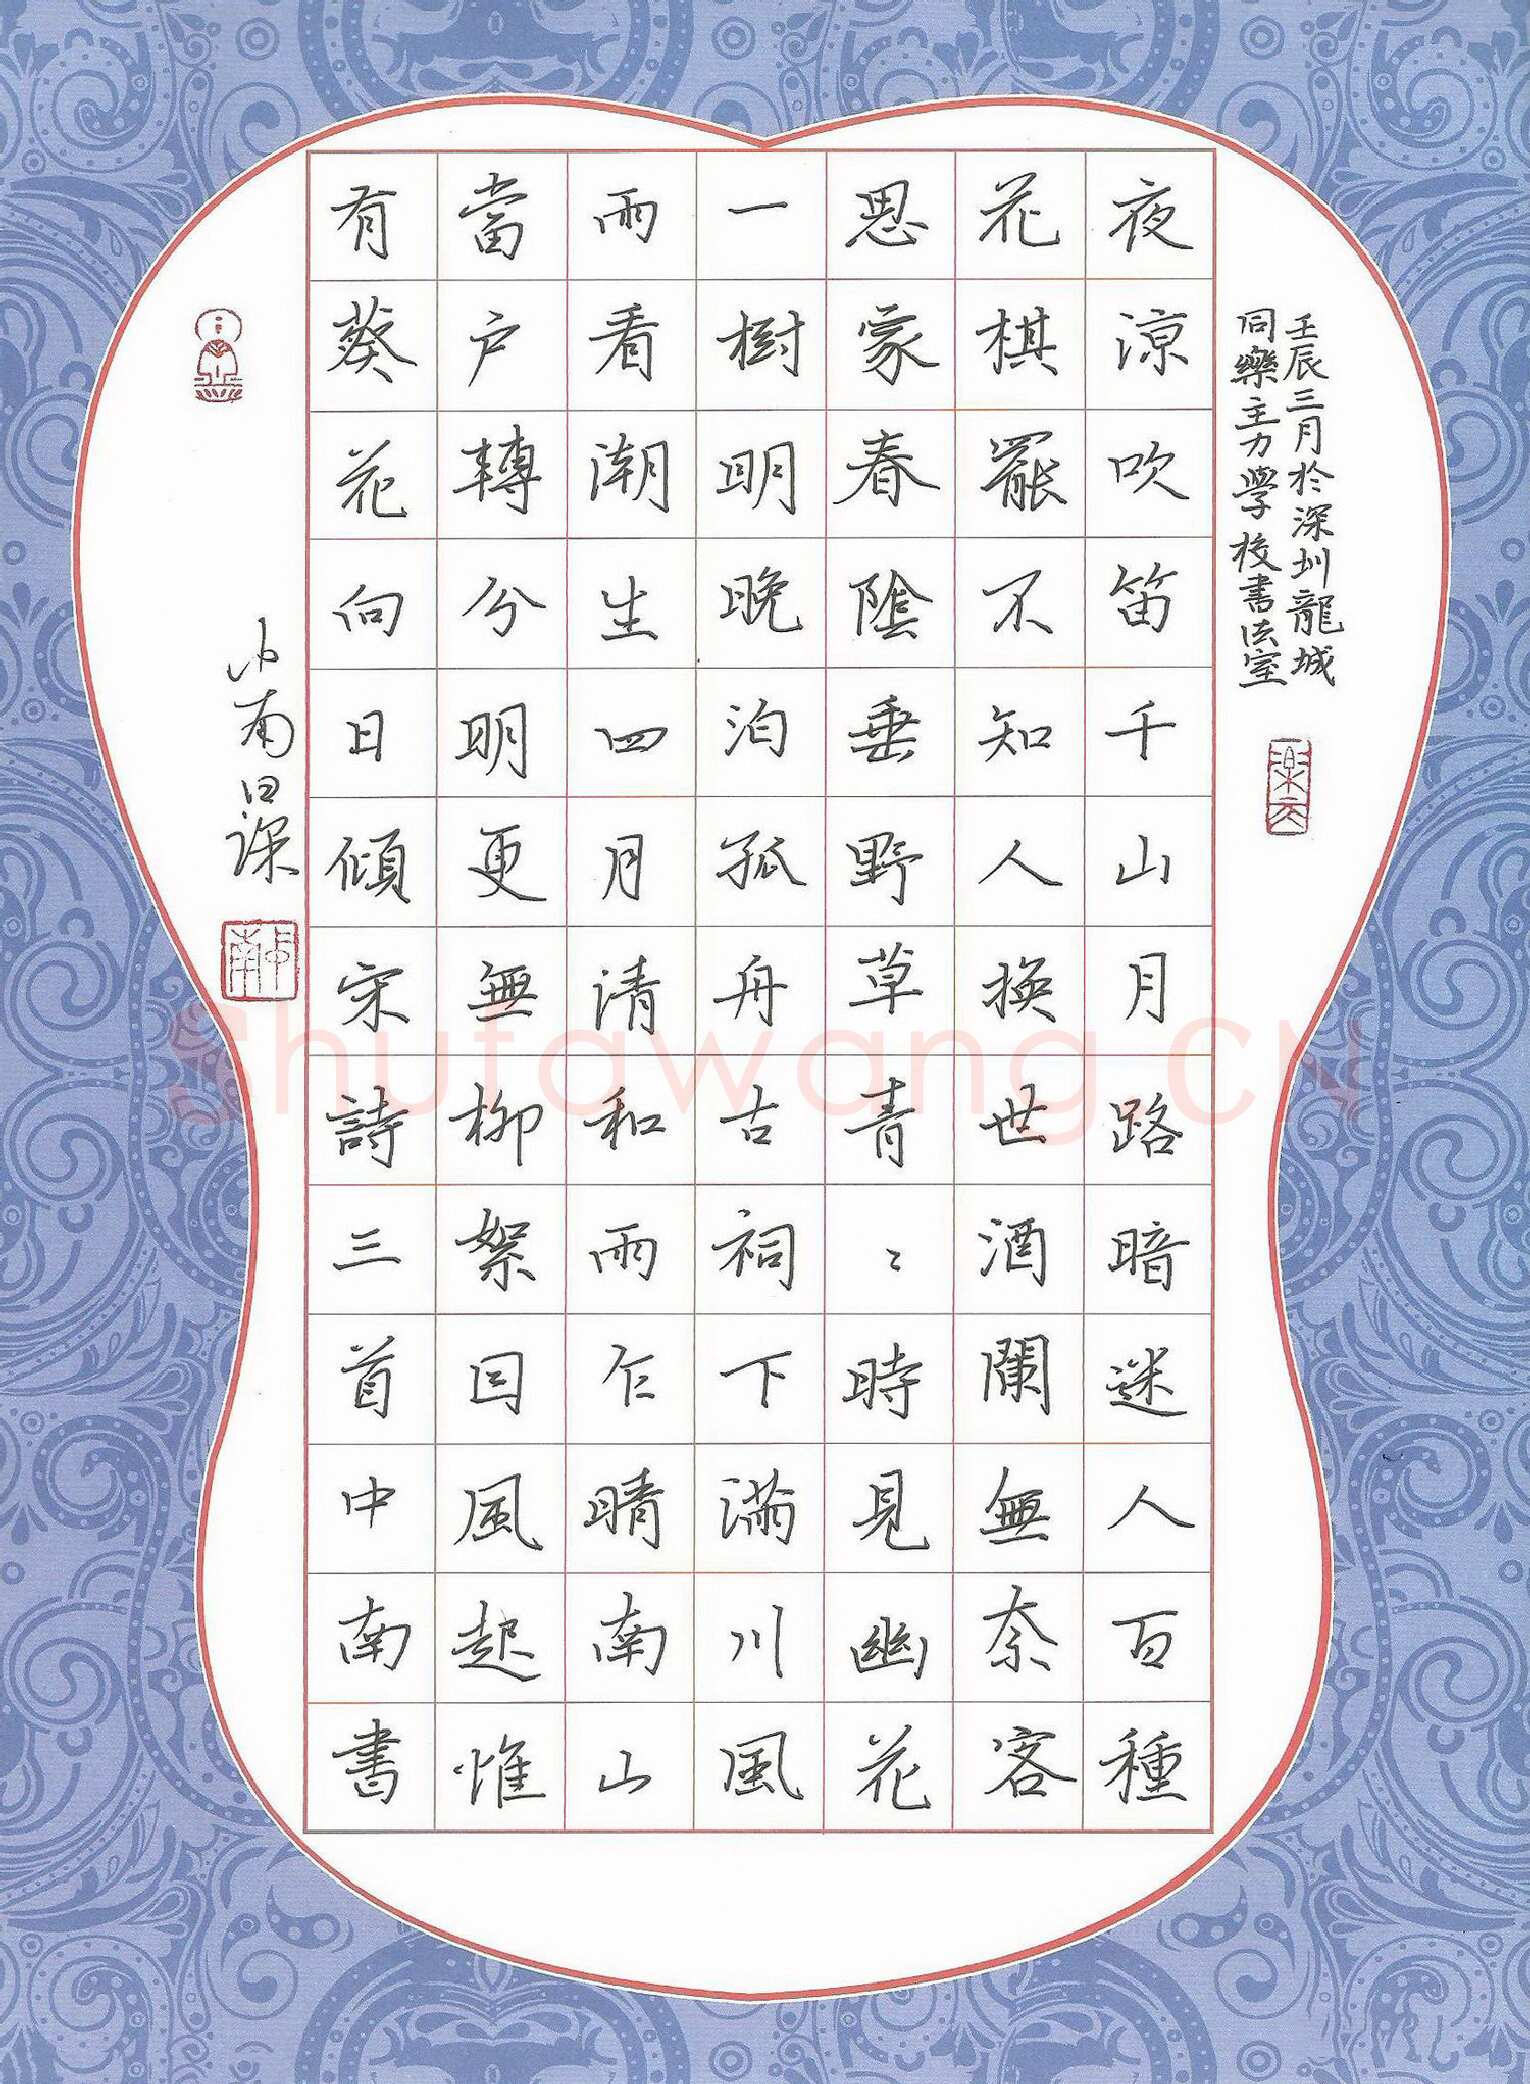 壬辰三月於深圳龍城
同樂主力學校書法室
夜涼吹笛千山月路暗迷人百種
花棋罷不知人換世酒闌無奈客
思家春陰垂野草青〻時見幽花
一樹明晚泊孤舟古祠下滿川風
雨看潮生四月清和雨乍晴南山
當户轉分明更無柳絮囙風起惟
有葵花向日傾宋詩三首中南書
中南日课
Shufawang.CN